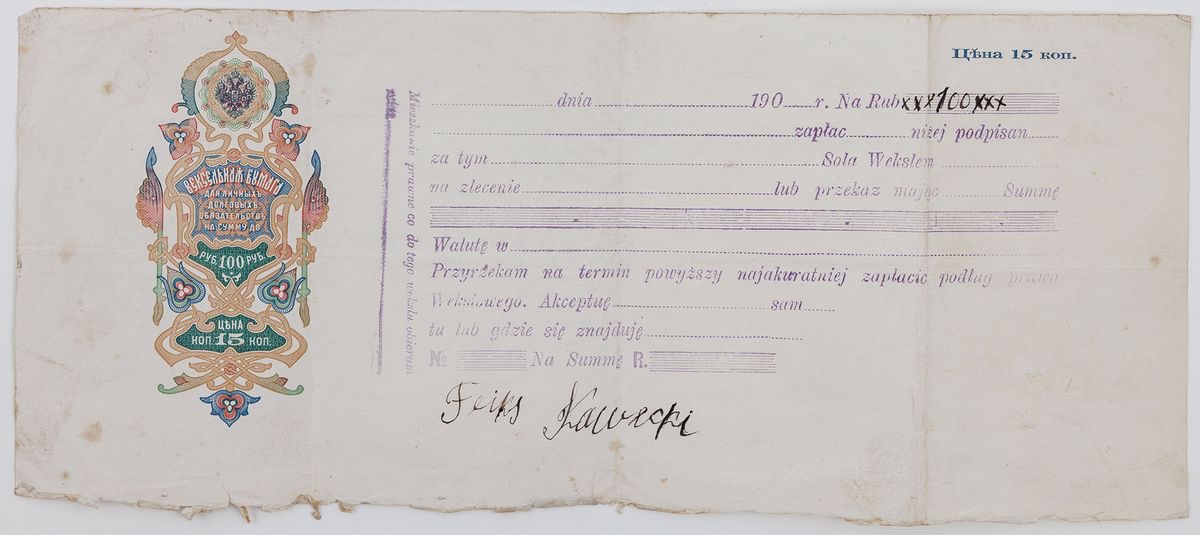 Цѣна 15 коп.
ВЕКСЕЛЬНАЯ БУМАГА
ДЛЯ ЛИЧНЫХЪ
ДОЛГОВЫХЪ
ОБЯЗАТЕЛЬСТВЪ
НА СУММУ ДО
РУБ. 100 РУБ.
ЦѢНА
КОП. 15 КОП.
Mieszkanie prawne co do tego wekslu obieram
dnia 190 r. Na Rub xxx100xxx
zapłac niżej podpisan
za tym Sola Wekslem
na zlecenie lub przekaz mając Summę
Walutę w
Przyrżekam na termin powyższy najakuratniej zapłacic podług prawa
Wekslowego. Akceptuę sam
tu lub gdzie się znajduję
№ Na Summę R.
Feiks Kawecki